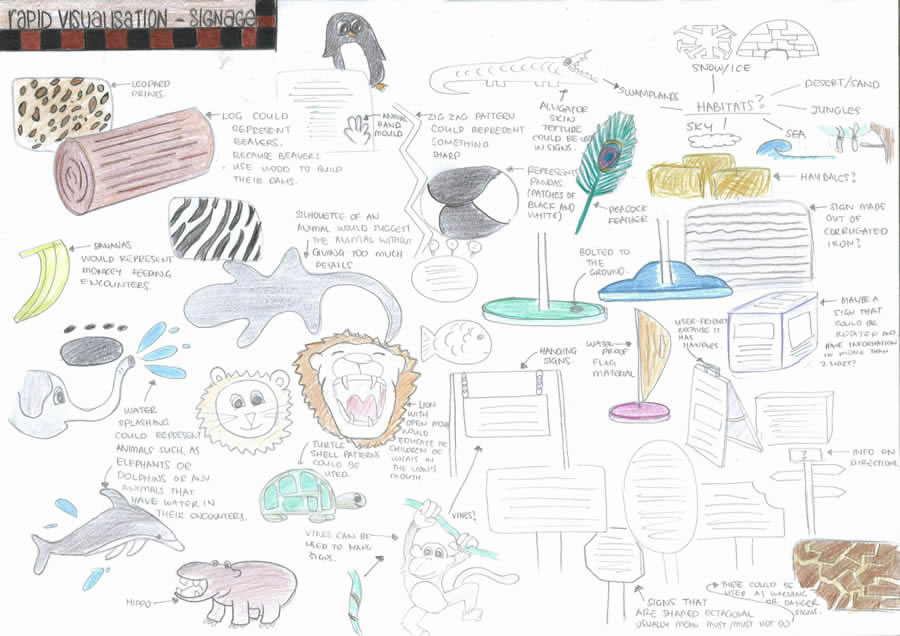 RAPID VISUALISATION - SIGNAGE
LEOPARD
PRINTS.
LOG COULD
REPRESENT
BEAVERS.
BECAUSE BEAVERS
USE WOOD TO BUILD
THEIR DAMS.
ANIMAL
HAND
MOULD
ZIG ZAG PATTERN
COULD REPRESENT
SOMETHING
SHARP
ALLIGATOR
SKIN
TEXTURE
COULD BE USED
IN SIGNS.
SWAMPLANDS
SNOW/ICE
HABITATS?
DESERT/SAND
JUNGLES
SKY
SEA
HAYBALES?
REPRESENTS
PANDAS.
(PATCHES OF
BLACK AND
WHITE)
PEACOCK
FEATHER
SIGN MADE
OUT OF
CORRUGATED
IRON?
BANANAS
WOULD REPRESENT
MONKEY FEEDING
ENCOUNTERS.
SILHOUETTE OF AN
ANIMAL WOULD SUGGEST
THE ANIMAL WITHOUT
GIVING TOO MUCH
DETAILS
BOLTED TO
THE
GROUND.
MAYBE A
SIGN THAT
COULD BE
ROTATED AND
HAVE INFORMATION
IN MORE THAN
2 SIDES?
USER-FRIENDLY
BECAUSE IT
HAS
HANDLES.
WATER-
PROOF
FLAG
MATERIAL
HANGING
SIGNS.
WATER
SPLASHING
COULD REPRESENT
ANIMALS SUCH AS
ELEPHANTS OR
DOLPHINS OR ANY
ANIMALS THAT
HAVE WATER IN
THEIR ENCOUNTERS.
LION
WITH
OPEN MOUTH
WOULD
EDUCATE
CHILDREN OF
WHATS IN
THE LION'S
MOUTH.
TURTLE
SHELL PATTERNS
COULD BE
USED.
INFO ON
DIRECTIONS
?
VINES?
VINES CAN BE
USED TO HANG
SIGNS.
HIPPO
SIGNS THAT
ARE SHAPED OCTAGONAL
USUALLY MEAN MUST/MUST NOT DO
THESE COULD BE
USED AS WARNING
OR DANGER
SIGNS.